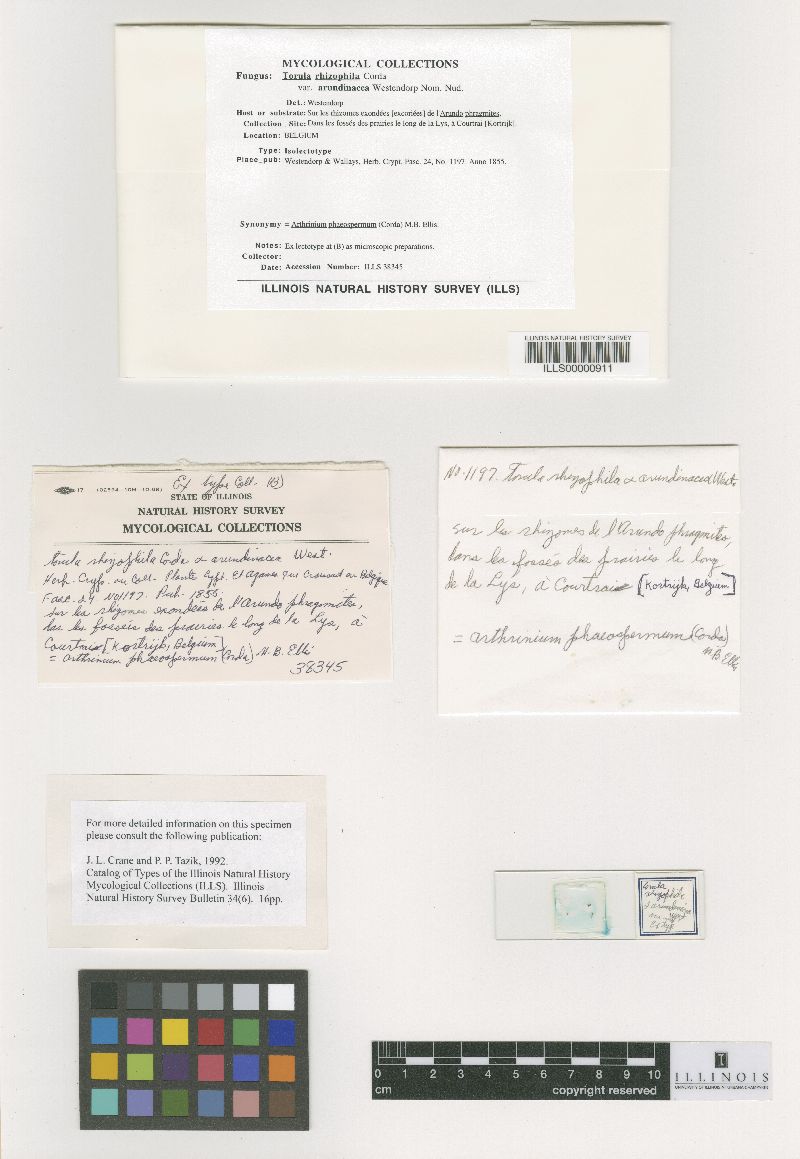 MYCOLOGICAL COLLECTIONS
Fungus: Torula rhizophila Corda
var. arundinacea Westendorp Nom. Nud.
Det.: Westendorp
Host or substrate: Sur les rhizomes exondées [excoriées] de l'Arundo phragmites.
Collection Site: Dans les fossés des prairies le long de la Lys, à Courtrai [Kortrijk].
Location: BELGIUM
Type: Isolectotype
Place_pub: Westendorp & Wallays, Herb. Crypt. Fasc. 24, No. 1197. Anno 1855.
Synonymy = Arthrinium phaeospermum (Corda) M.B. Ellis.
Notes: Ex lectotype at (B) as microscopic preparations.
Collector:
Date: Accession Number: ILLS 38345
ILLINOIS NATURAL HISTORY SURVEY (ILLS)
ILLINOIS NATURAL HISTORY SURVEY
ILLS00000911
Ex type Coll. (B)
STATE OF ILLINOIS
NATURAL HISTORY SURVEY
MYCOLOGICAL COLLECTIONS
Torula rhizophila Corda α arundinacea West.
Herb. Crypt. ou Coll. Plante Crypt. Et Agames qui Croissent en Belgique
Fasc. 24 No 1197. Pub. 1855.
Sur les rhizomes exondées de l'Arundo phragmites,
las les fossées des prairies le long de la Lys, à
Courtrais [Kortrijk, Belgium]
= arthrinium phaeospermum (Corda) M.B. Ellis
38345
No. 1197. Torula rhizophila α arundinacea West.
Sur les rhizomes de l'Arundo phragmites,
dans les fossés des prairies le long
de la Lys, à Courtrais [Kortrijk, Belgium]
= arthrinium phaeospermum (Corda)
M.B. Ellis
For more detailed information on this specimen
please consult the following publication:
J. L. Crane and P. P. Tazik, 1992.
Catalog of Types of the Illinois Natural History
Mycological Collections (ILLS). Illinois
Natural History Survey Bulletin 34(6). 16pp.
Torula
rhizophila
α arundinacea
West
0 1 2 3 4 5 6 7 8 9 10
cm
copyright reserved
I
ILLINOIS
UNIVERSITY OF ILLINOIS AT URBANA-CHAMPAIGN